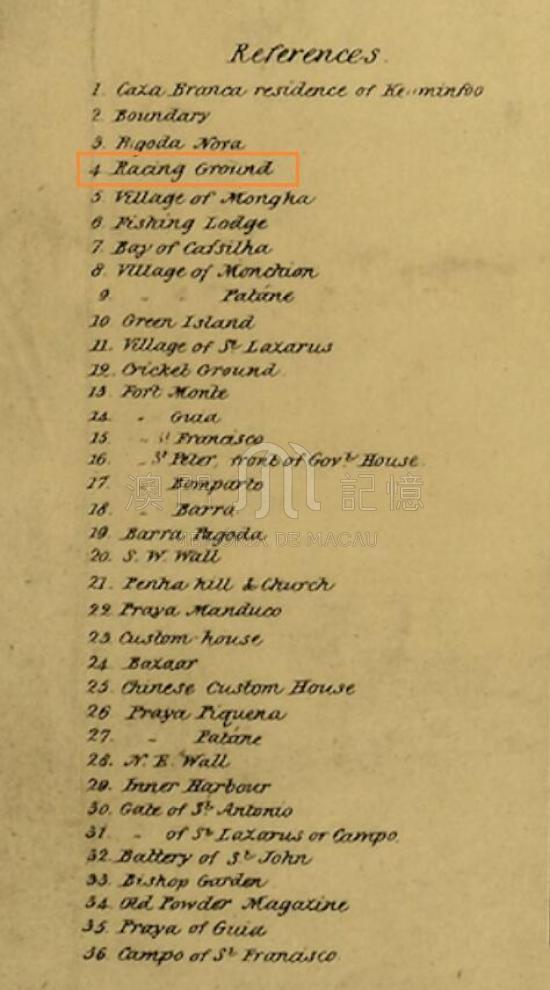 References.
1. Caza Branca residence of
2. Boundary
3. Pagoda Nova
4 Racing Ground
5 Village of Mongha
6 Fishing Lodge
7 Bay of Cassilha
8. Village of Monchion
9. " " Patane
10 Green Island
11. Village of St Lazarus
12. Cricket Ground
13 Fort Monte
14. " Guia
15. " St Francisco
16. " St Peter, front of Govt House.
17. " Bomparto
18. " Barra
19. Barra Pagoda
20. S. W. Wall
21. Penha hill & Church
22 Praya Manduco
23. Custom house
24. Bazaar
25. Chinese Custom House
26 Praya Piquena
27. " Patáne
28. N. E. Wall
29. Inner Harbour
30. Gate of St Antonio
31. " of St Lazarus or Campo.
32. Battery of St John
33. Bishop Garden
34. Old Powder Magazine
35. Praya of Guia
36. Campo of St Francisco.
澳門記憶
MEMÓRIA DE MACAU